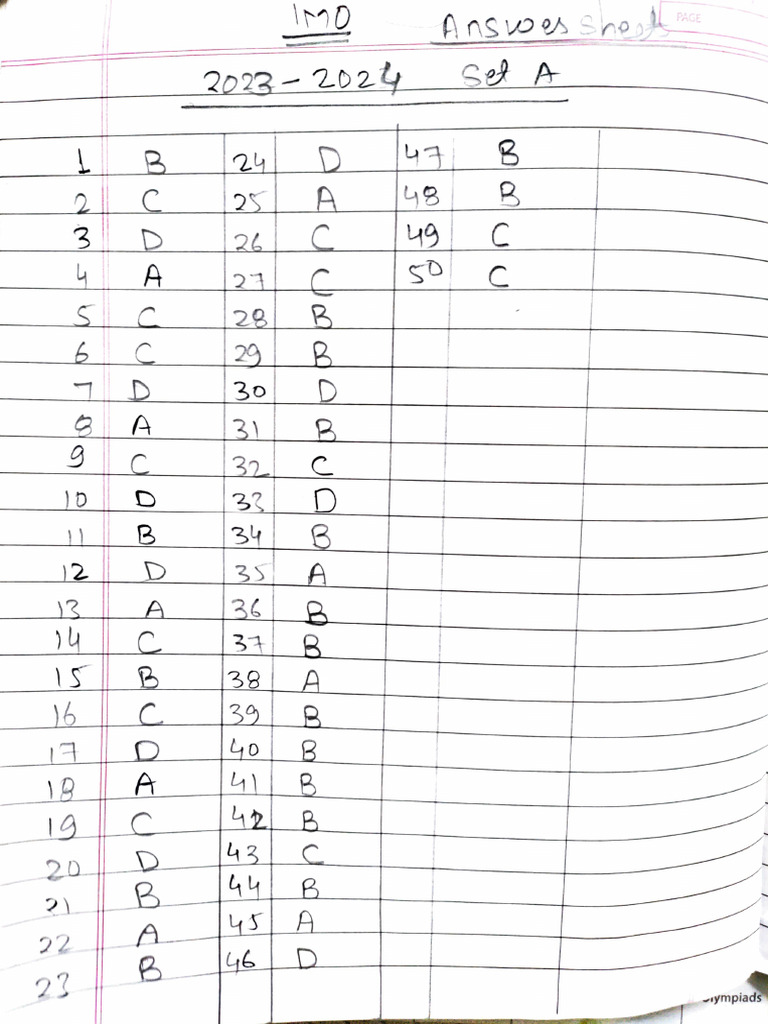 IMO Answer Sheet PAGE
2023-2024 Set A
1 B 24 D 47 B
2 C 25 A 48 B
3 D 26 C 49 C
4 A 27 C 50 C
5 C 28 B
6 C 29 B
7 D 30 D
8 A 31 B
9 C 32 C
10 D 33 D
11 B 34 B
12 D 35 A
13 A 36 B
14 C 37 B
15 B 38 A
16 C 39 B
17 D 40 B
18 A 41 B
19 C 42 B
20 D 43 C
21 B 44 B
22 A 45 A
23 B 46 D
Olympiads